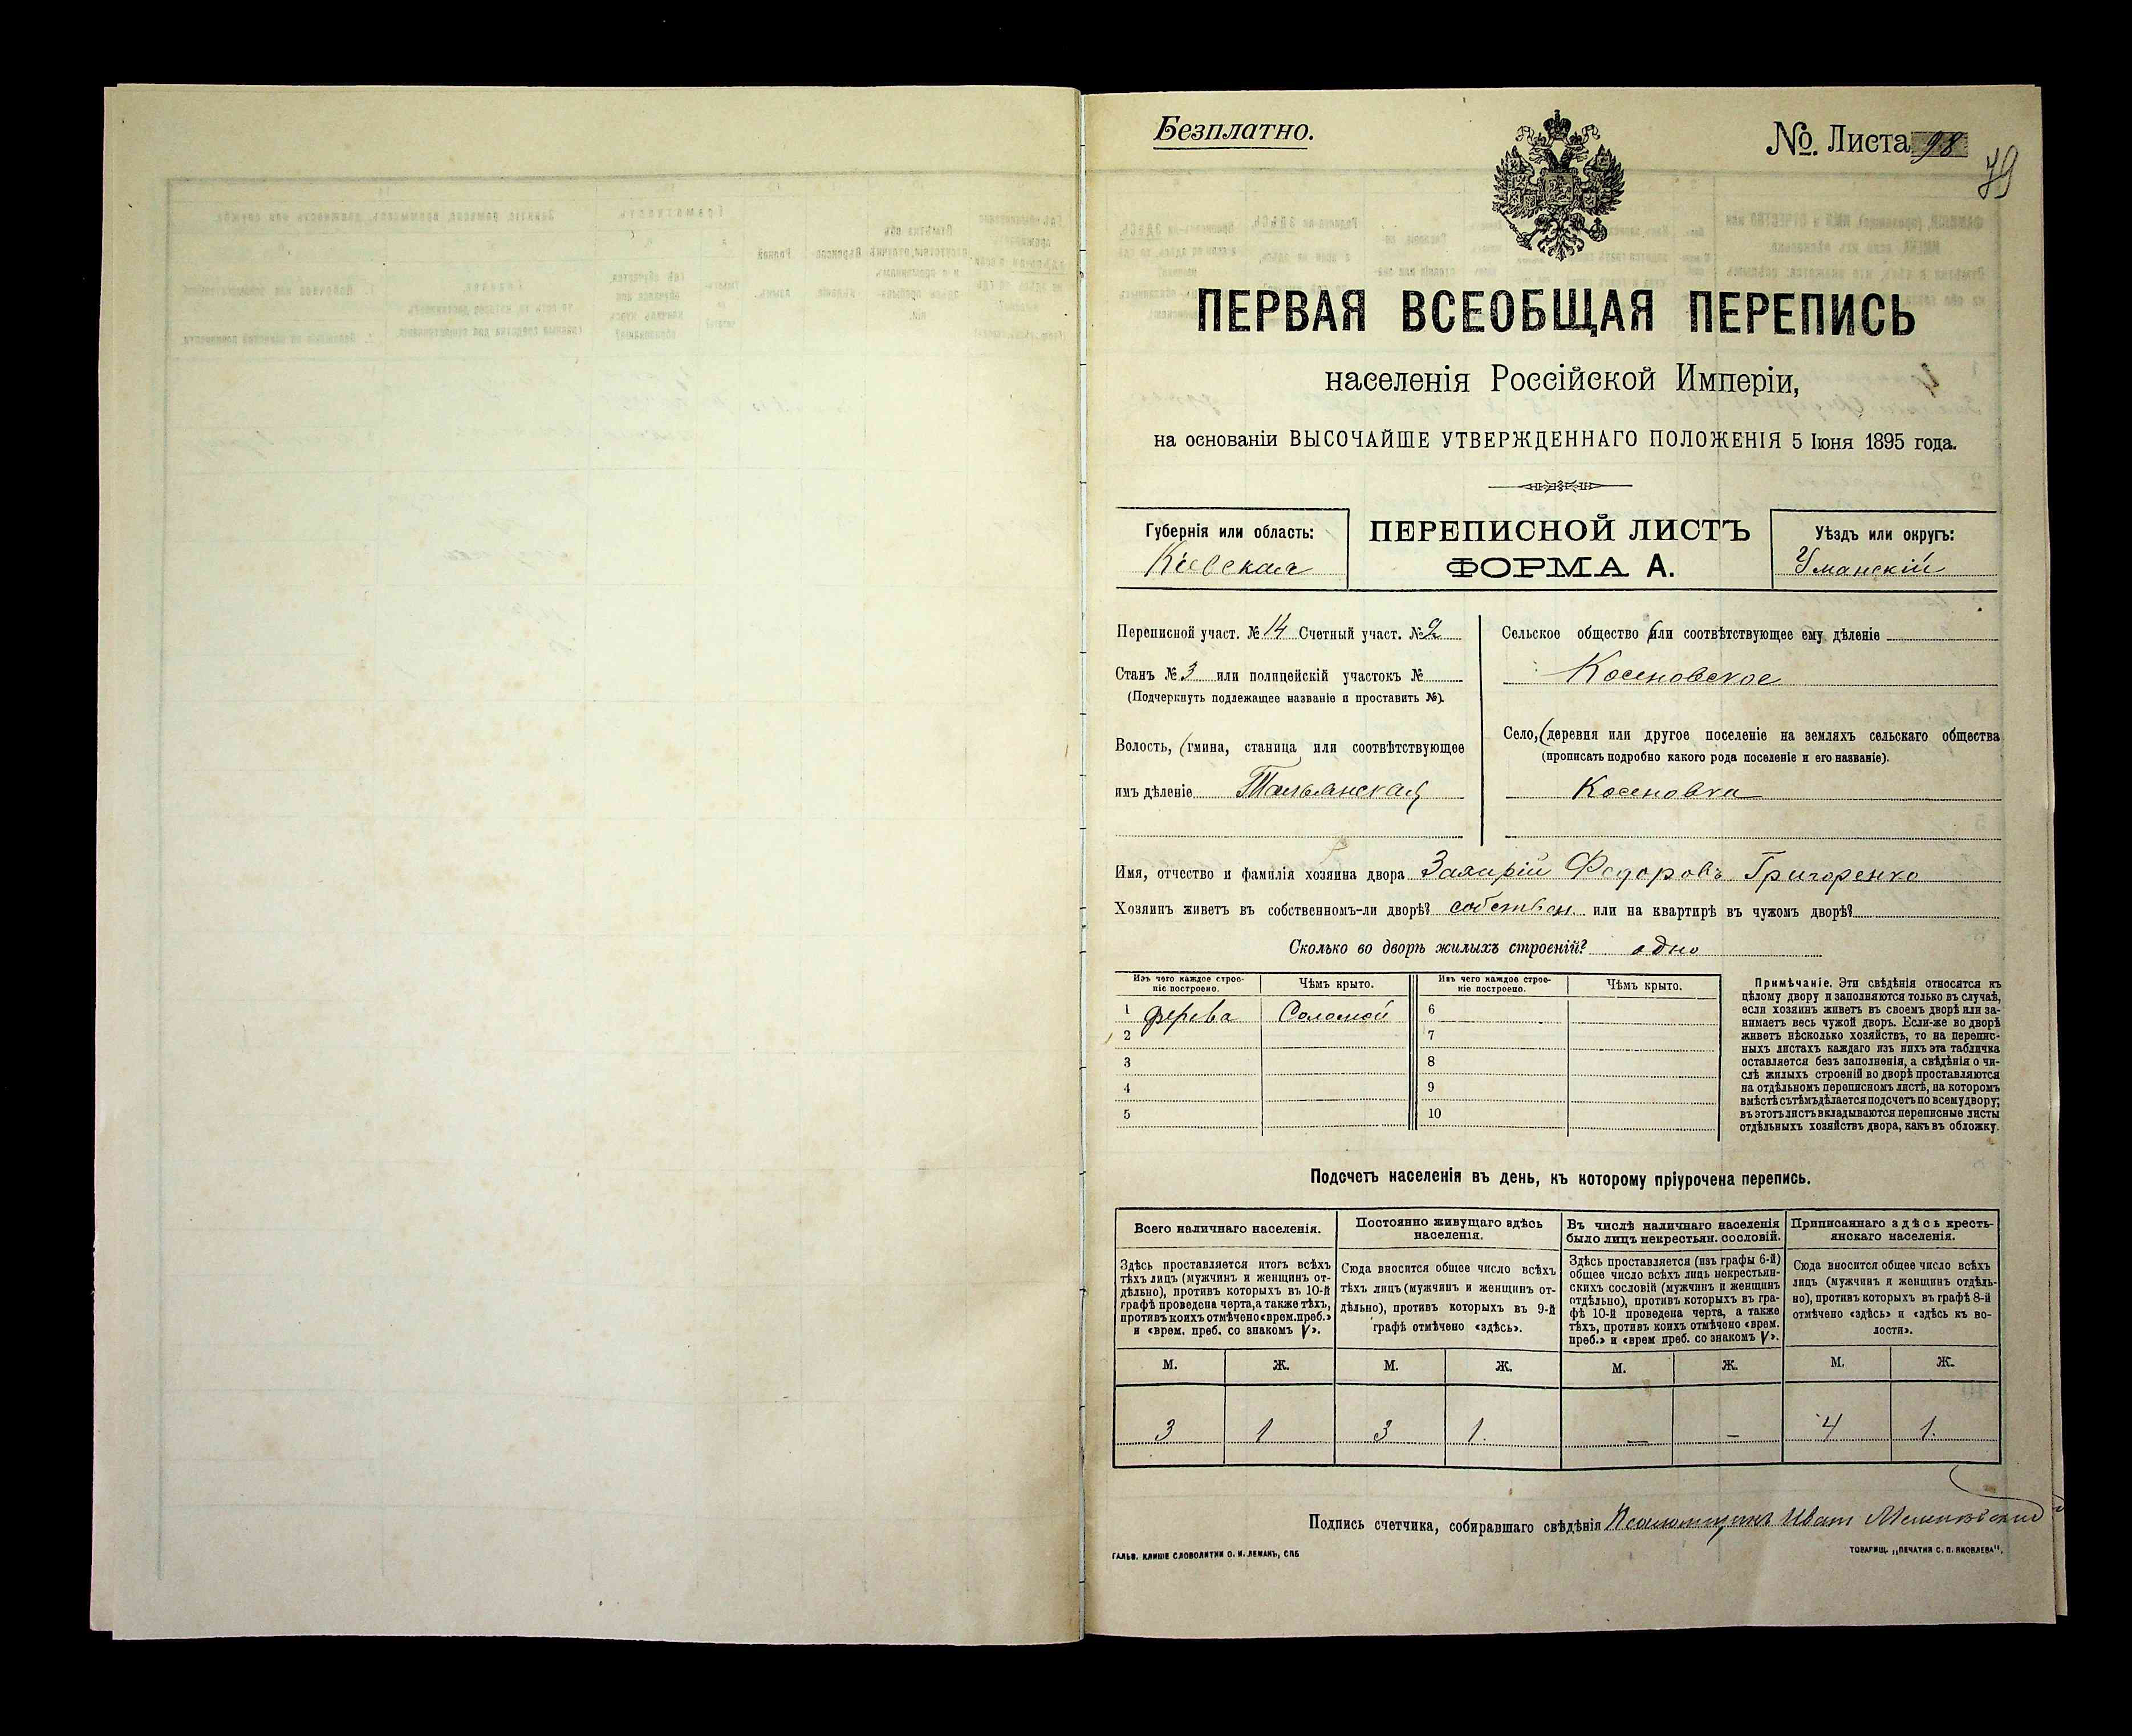 Безплатно.
№. Листа 98
79
ПЕРВАЯ ВСЕОБЩАЯ ПЕРЕПИСЬ
населенія Россійской Имперіи,
на основаніи ВЫСОЧАЙШЕ УТВЕРЖДЕННАГО ПОЛОЖЕНІЯ 5 Іюня 1895 года.
Губернія или область:
Кіевская
ПЕРЕПИСНОЙ ЛИСТЪ
ФОРМА А.
Уѣздъ или округъ:
Уманскій
Переписной участ. № 14 Счетный участ. № 2
Станъ № 3 или полицейскій участокъ №
(Подчеркнуть подлежащее названіе и проставить №).
Волость, (гмина, станица или соотвѣтствующее
имъ дѣленіе Тальянская
Сельское общество (или соотвѣтствующее ему дѣленіе
Косеновское
Село, (деревня или другое поселеніе на земляхъ сельскаго общества
(прописать подробно какого рода поселеніе и его названіе).
Косеновка
Имя, отчество и фамилія хозяина двора Захарій Федоровъ Григоренко
Хозяинъ живетъ въ собственномъ-ли дворѣ? собствен. или на квартирѣ въ чужомъ дворѣ?
Сколько во дворѣ жилыхъ строеній? одно
Изъ чего каждое строе-
ніе построено.
Чѣмъ крыто.
Изъ чего каждое строе-
ніе построено.
Чѣмъ крыто.
1 дерева Соломой 6
2 7
3 8
4 9
5 10
Примѣчаніе. Эти свѣдѣнія относятся къ
цѣлому двору и заполняются только въ случаѣ,
если хозяинъ живетъ въ своемъ дворѣ или за-
нимаетъ весь чужой дворъ. Если-же во дворѣ
живетъ нѣсколько хозяйствъ, то на перепис-
ныхъ листахъ каждаго изъ нихъ эта табличка
оставляется безъ заполненія, а свѣдѣнія о чи-
слѣ жилыхъ строеній во дворѣ проставляются
на отдѣльномъ переписномъ листѣ, на которомъ
вмѣстѣ съ тѣмъ дѣлается подсчетъ по всему двору;
въ этотъ листъ вкладываются переписные листы
отдѣльныхъ хозяйствъ двора, какъ въ обложку.
Подсчетъ населенія въ день, къ которому пріурочена перепись.
Всего наличнаго населенія.
Здѣсь проставляется итогъ всѣхъ
тѣхъ лицъ (мужчинъ и женщинъ от-
дѣльно), противъ которыхъ въ 10-й
графѣ проведена черта, а также тѣхъ,
противъ коихъ отмѣчено «врем. преб.»
и «врем. преб. со знакомъ V».
Постоянно живущаго здѣсь
населенія.
Сюда вносится общее число всѣхъ
тѣхъ лицъ (мужчинъ и женщинъ от-
дѣльно), противъ которыхъ въ 9-й
графѣ отмѣчено «здѣсь».
Въ числѣ наличнаго населенія
было лицъ некрестьян. сословій.
Здѣсь проставляется (изъ графы 6-й)
общее число всѣхъ лицъ некрестьян-
скихъ сословій (мужчинъ и женщинъ
отдѣльно), противъ которыхъ въ гра-
фѣ 10-й проведена черта, а также
тѣхъ, противъ коихъ отмѣчено «врем.
преб.» и «врем преб. со знакомъ V».
Приписаннаго здѣсь кресть-
янскаго населенія.
Сюда вносится общее число всѣхъ
лицъ (мужчинъ и женщинъ отдѣль-
но), противъ которыхъ въ графѣ 8-й
отмѣчено «здѣсь» и «здѣсь къ во-
лости».
М. Ж. М. Ж. М. Ж. М. Ж.
3 1 3 1. — — 4 1.
Подпись счетчика, собиравшаго свѣдѣнія Псаломщикъ Иван
ГАЛЬВ. КЛИШЕ СЛОВОЛИТНИ О. И. ЛЕМАНЪ, СПБ
ТОВАРИЩ. „ПЕЧАТНЯ С. П. ЯКОВЛЕВА".